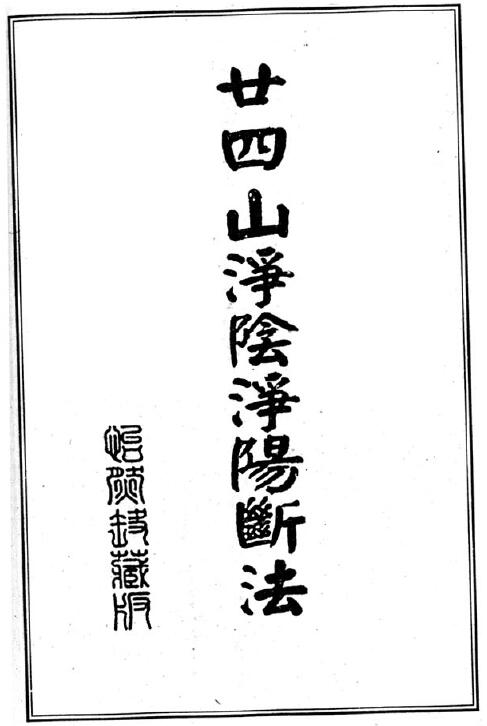 廿四山淨陰淨陽斷法
藏版